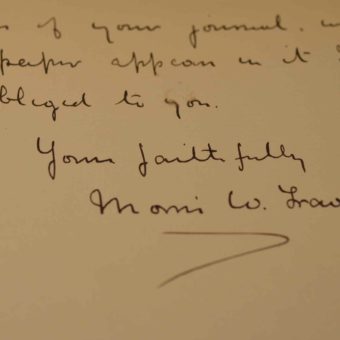 of your journal.
paper appear in it
obliged to you.
Yours faithfully
Morris W. Trav